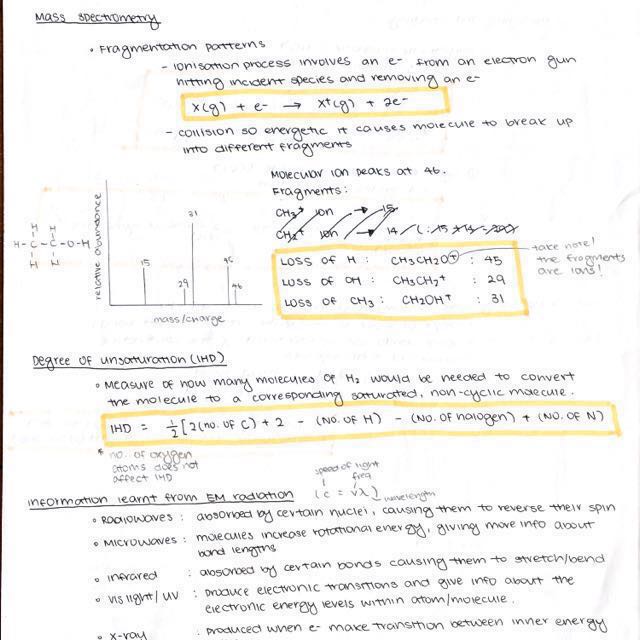 Mass spectrometry
• Fragmentation patterns
- ionisation process involves an e- from an electron gun
hitting incident species and removing an e-
X(g) + e- → X+(g) + 2e-
- collision so energetic it causes molecule to break up
into different fragments
Molecular ion peaks at 46.
Fragments:
CH3+ ion → 15
CH2+ ion → 14
Loss of H : CH3CH2O+ : 45
Loss of OH : CH3CH2+ : 29
Loss of CH3 : CH2OH+ : 31
take note!
the fragments
are ions!
H H
H-C-C-O-H
H H
relative abundance
15
29
31
45
46
mass/charge
Degree of unsaturation (IHD)
• Measure of how many molecules of H2 would be needed to convert
the molecule to a corresponding saturated, non-cyclic molecule.
IHD = 1/2 [2(no. of C) + 2 - (no. of H) - (no. of halogen) + (no. of N)
* no. of oxygen
atoms does not
affect IHD
speed of light
freq
(c = vλ) wavelength
Information learnt from EM radiation
• Radiowaves : absorbed by certain nuclei, causing them to reverse their spin
• Microwaves : molecules increase rotational energy, giving more info about
bond lengths
• infrared : absorbed by certain bonds causing them to stretch/bend
• vis light/UV : produce electronic transitions and give info about the
electronic energy levels within atom/molecule.
• x-ray : produced when e- make transition between inner energy